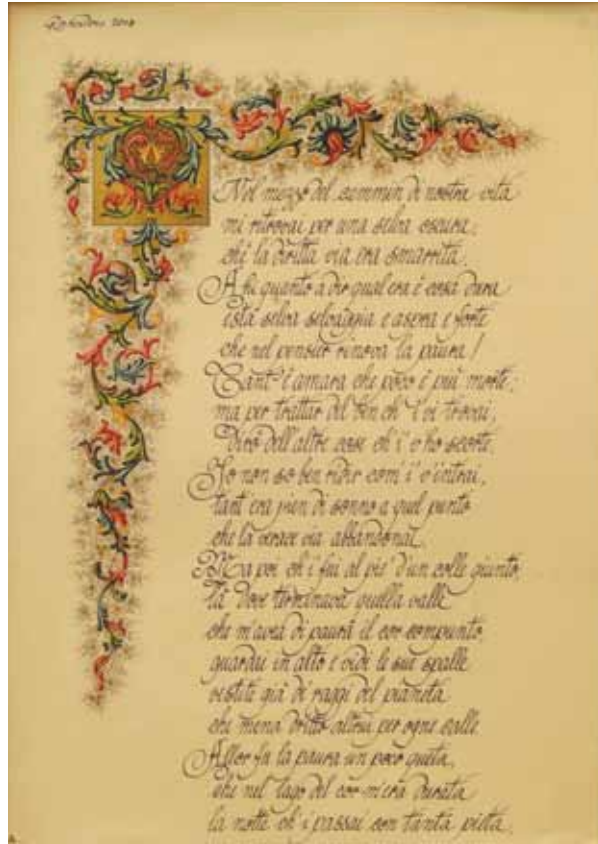 2010
Nel mezzo del cammin di nostra vita
mi ritrovai per una selva oscura,
ché la diritta via era smarrita.
A fu quanto a dir qual era è cosa dura
esta selva selvaggia e aspra e forte
che nel pensier rinova la paura!
Tant'è amara che poco è più morte;
ma per trattar del ben ch'i' vi trovai,
dirò dell'altre cose ch'i' v'ho scorte.
Io non so ben ridir com'i' v'intrai,
tant'era pien di sonno a quel punto
che la verace via abbandonai.
Ma poi ch'i fui al piè d'un colle giunto,
là dove terminava quella valle
che m'avea di paura il cor compunto,
guardai in alto e vidi le sue spalle
vestite già di raggi del pianeta
che mena dritto altrui per ogne calle.
Allor fu la paura un poco queta,
che nel lago del cor m'era durata
la notte ch'i passai con tanta pieta.